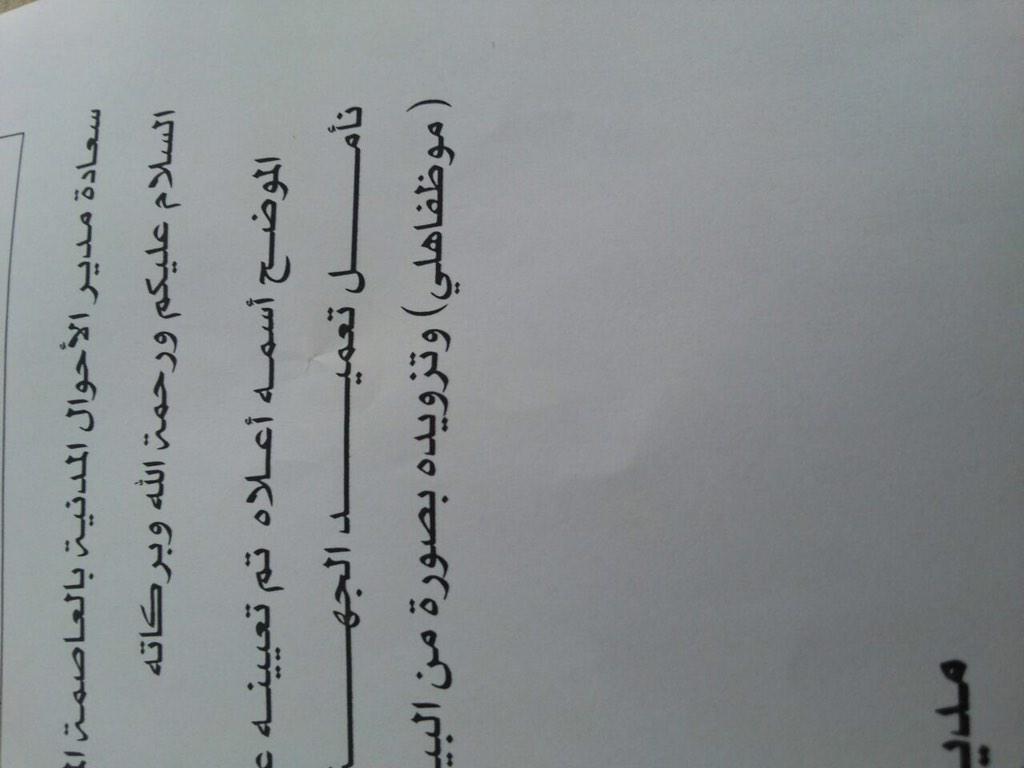 سعادة مدير الأحوال المدنية بالعاصمة
السلام عليكم ورحمة الله وبركاته
الموضح أسمه أعلاه تم تعيينه
نأمل تعميد
(موظفاهلي) وتزويده بصورة من